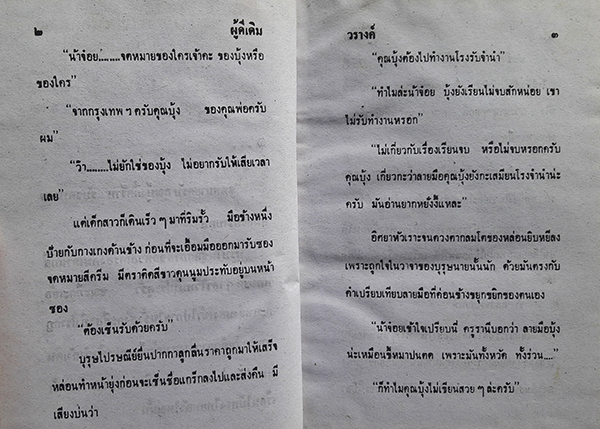 ๒ ผู้ดีเดิม
"น้าจ้อย........จดหมายของใครเจ้าคะ ของบุ้งหรือ
ของใคร"
"จากกรุงเทพ ฯ ครับคุณบุ้ง ของคุณพ่อครับ
ผม"
"ว้า........ไม่ยักใช่ของบุ้ง ไม่อยากรับให้เสียเวลา
เลย"
แต่เด็กสาวก็เดินเร็ว ๆ มาที่ริมรั้ว มือข้างหนึ่ง
ป้ายกับกางเกงด้านข้าง ก่อนที่จะเอื้อมมือออกมารับซอง
จดหมายสีครีม มีตราคิดสีขาวดุนนูมประทับอยู่บนหน้า
ซอง
"ต้องเซ็นรับด้วยครับ"
บุรุษไปรษณีย์ยื่นปากกาลูกลื่นราคาถูกมาให้เสร็จ
หล่อนทำหน้ายุ่งก่อนจะเซ็นชื่อแกร็กลงไปและส่งคืน มี
เสียงบ่นว่า
วรางค์ ๓
"คุณบุ้งต้องไปทำงานโรงรับจำนำ"
"ทำไมล่ะน้าจ้อย บุ้งยังเรียนไม่จบสักหน่อย เขา
ไม่รับทำงานหรอก"
"ไม่เกี่ยวกับเรื่องเรียนจบ หรือไม่จบหรอกครับ
คุณบุ้ง เกี่ยวกะว่าลายมือคุณบุ้งยังกะเสมียนโรงจำนำน่ะ
ครับ มันอ่านยากหยั่งงี้แหละ"
อิศยาหัวเราะจนดวงตากลมโตของหล่อนยิบหยีลง
เพราะถูกใจในวาจาของบุรุษนายนั้นนัก ด้วยมันตรงกับ
คำเปรียบเทียบลายมือที่ค่อนข้างขยุกขยิกของตนเอง
"น้าจ้อยเข้าใจเปรียบนี่ ครูรานีบอกว่า ลายมือบุ้ง
น่ะเหมือนขี้หมาปนคด เพราะมันทั้งหวัด ทั้งร่วน...."
"ก็ทำไมคุณบุ้งไม่เขียนสวย ๆ ล่ะครับ"